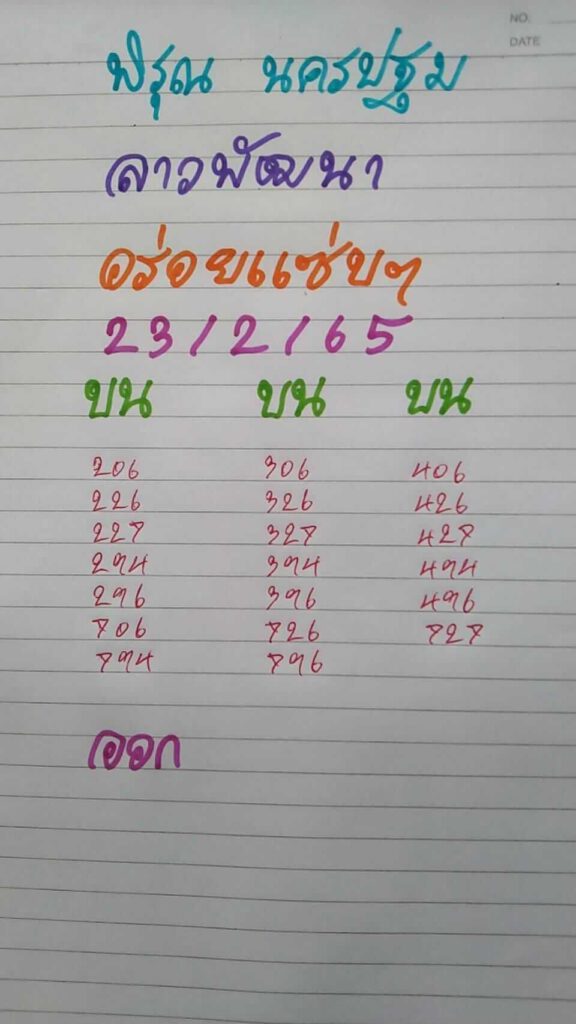 NO.
DATE
พิรุณ นครปฐม
ลาวพัฒนา
อร่อยแซ่บๆ
23/2/65
บน บน บน
206 306 406
226 326 426
227 327 427
294 394 494
296 396 496
706 726 727
794 796
ออก